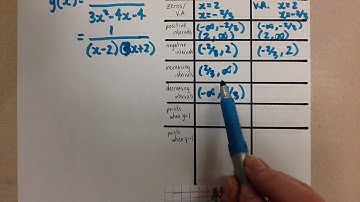 y(x)=
3x²-4x-4
= 1
(x-2)(3x+2)
zeros/
V.A.
x=2
x=-2/3
V.A. x=2
x=-2/3
positive
intervals
(-∞,-2/3)
(2,∞)
(-∞,-2/3)
(2,∞)
negative
intervals
(-2/3, 2)
(-2/3, 2)
increasing
intervals
(2/3, ∞)
decreasing
intervals
(-∞, /3)
points
when y=1
points
when y=-1